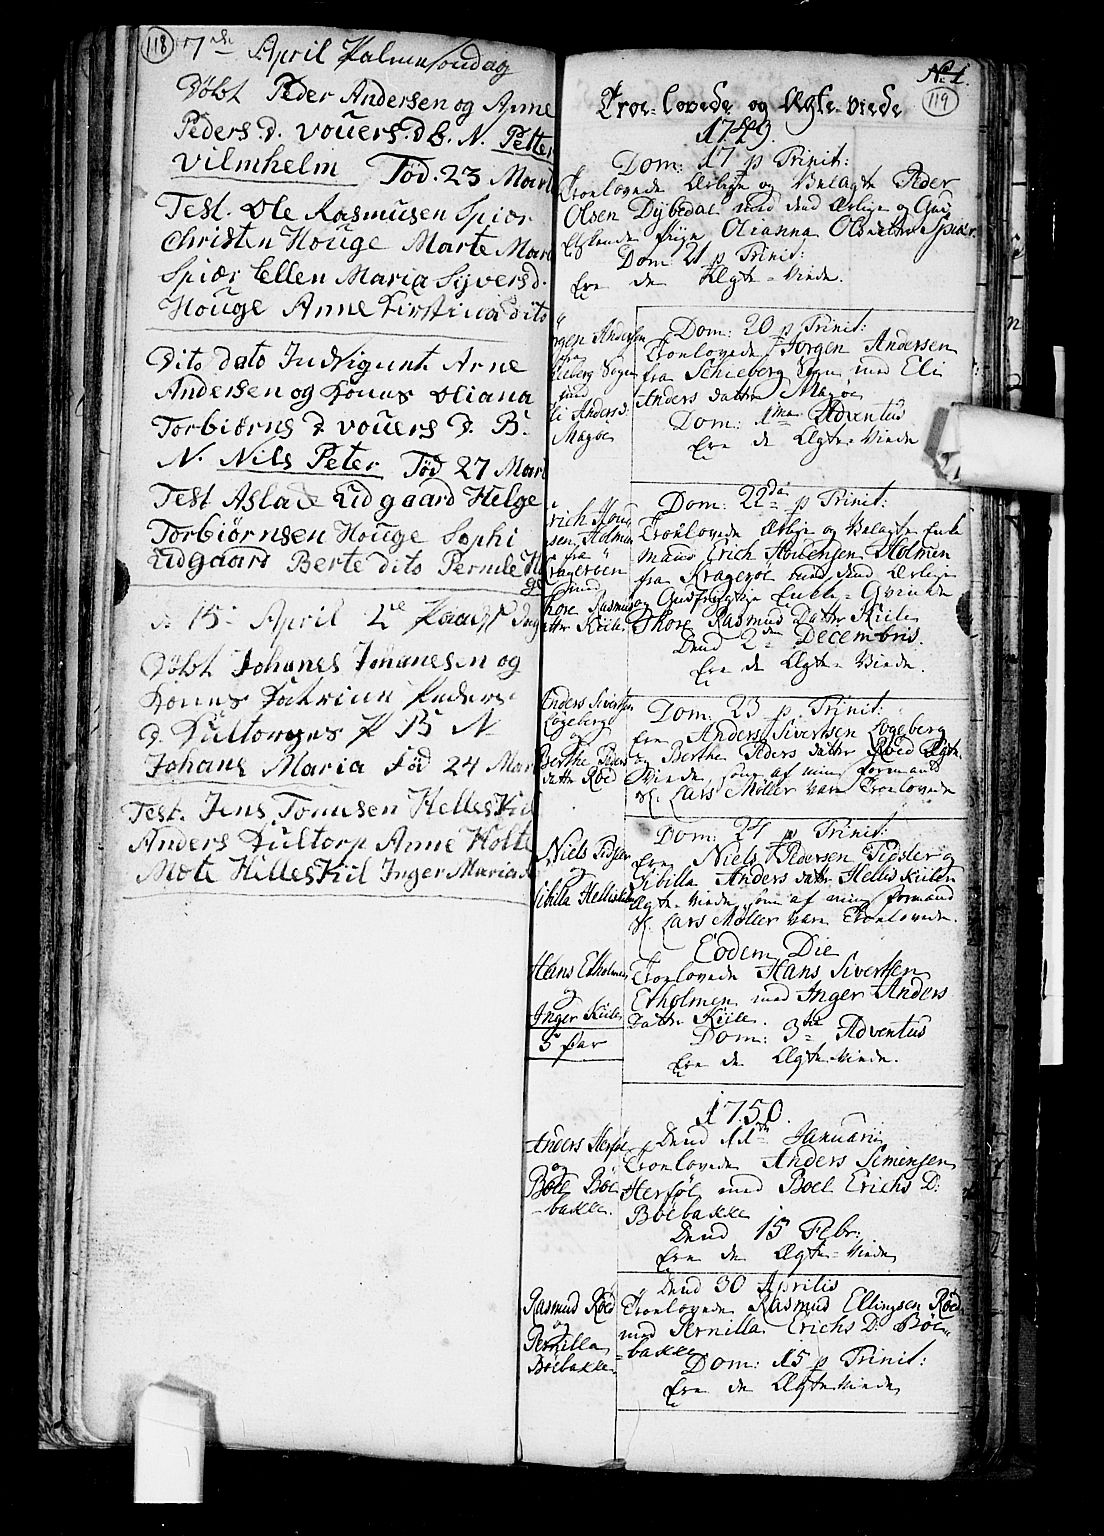 118
17de April Palmesondag
Döbt Peder Andersen og Anne
Peders D. vouers. d B. N. Petter
Vilmhelm Föd. 23 Mart
Test. Ole Rasmusen Spiær
Christen Houge Marte Mari
Spiær Ellen Maria Syvers d.
Houge Anne Kirstina dito
Dito dato Arne
Andersen og Konus Oliana
Torbiørns d vouers D. B.
N. Nils Peter Föd 27 Mart
Test Aslac Lidgaard Helge
Torbiørnsen Houge Sophi
Lidgaard Berte dito Pernele
15 April 2e
Döbt Johanes Johanesen og
Konus Katrina Peders
d. Kultorps B N
Johans Maria Föd 24 Mart
Test. Jens Tonnesen Helleskil
Anders Kultorp Anne Holte
Mæte Hilleskil Inger Maria
No 1.
119
Troe-lovede og Ægte-viede
1749.
Dom: 17 p Trinit:
Troelovede Ærlige og Velagte Peder
Olsen Dybedal med dend Ærlige og Gud
Elskende Pige Olianna Ols datter Spiær
Dom 21 p Trinit:
Ere de Ægte-Viede.
Jörgen Andersen
fra
Schieberg Sogn
med
Eli Anders d.
Magöe
Dom: 20 p Trinit:
Troelovede Jörgen Andersen
fra Schieberg Sogn med Eli
Anders datter Magöe
Dom: 1ma Adventus
Ere de Ægte-Viede
Erich
Holmen
fra
Kragerøen
med
Thore Rasmus
datter Kiile.
Dom: 22da p Trinit:
Troelovede Ærlige og Velagte Enke
Mand Erich Holmen
fra Kragerøe med dend Ærlige
og Gudfrygtige Enke-Qvinde
Thore Rasmus Datter Kiile
Dend 2den Decembris.
Ere de Ægte-Viede.
Anders Sivertsen
Lögeberg
og
Berthe Peders
datter Röed
Dom: 23 p Trinit:
Ere Anders Sivertsen Lögeberg
og Berthe Peders datter Röed Ægte
Viede, som af min formand
Sl. Lars Möller vare Troelovede
Niels Tidsler
og
Sibilla Helleskilen
Dom: 24 p Trinit:
Ere Niels Pedersen Tidsler og
Sibilla Anders datter Helleskilen
Ægte-Viede, som af min formand
Sl. Lars Möller vare Troelovede.
Hans Exholmen
og
Inger Kiile
5 par
Eodem Die
Troelovede Hans Sivertsen
Exholmen med Inger Anders
Datter Kiile.
Dom: 3tia Adventus
Ere de Ægte-Viede.
1750.
Anders Herföl
og
Boel Böe-
bakke.
Dend 11te Januarii
Troelovede Anders Simensen
Herföl med Boel Erichs D:
Böebakke
Dend 15 Febr:
Ere de Ægte-Viede
Rasmus Röed
og
Pernilla
Böebakke.
Dend 30 Aprilis
Troelovede Rasmus Ellingsen Röed
med Pernilla Erichs D: Böe-
bakke.
Dom: 15 p Trinit:
Ere de Ægte-Viede